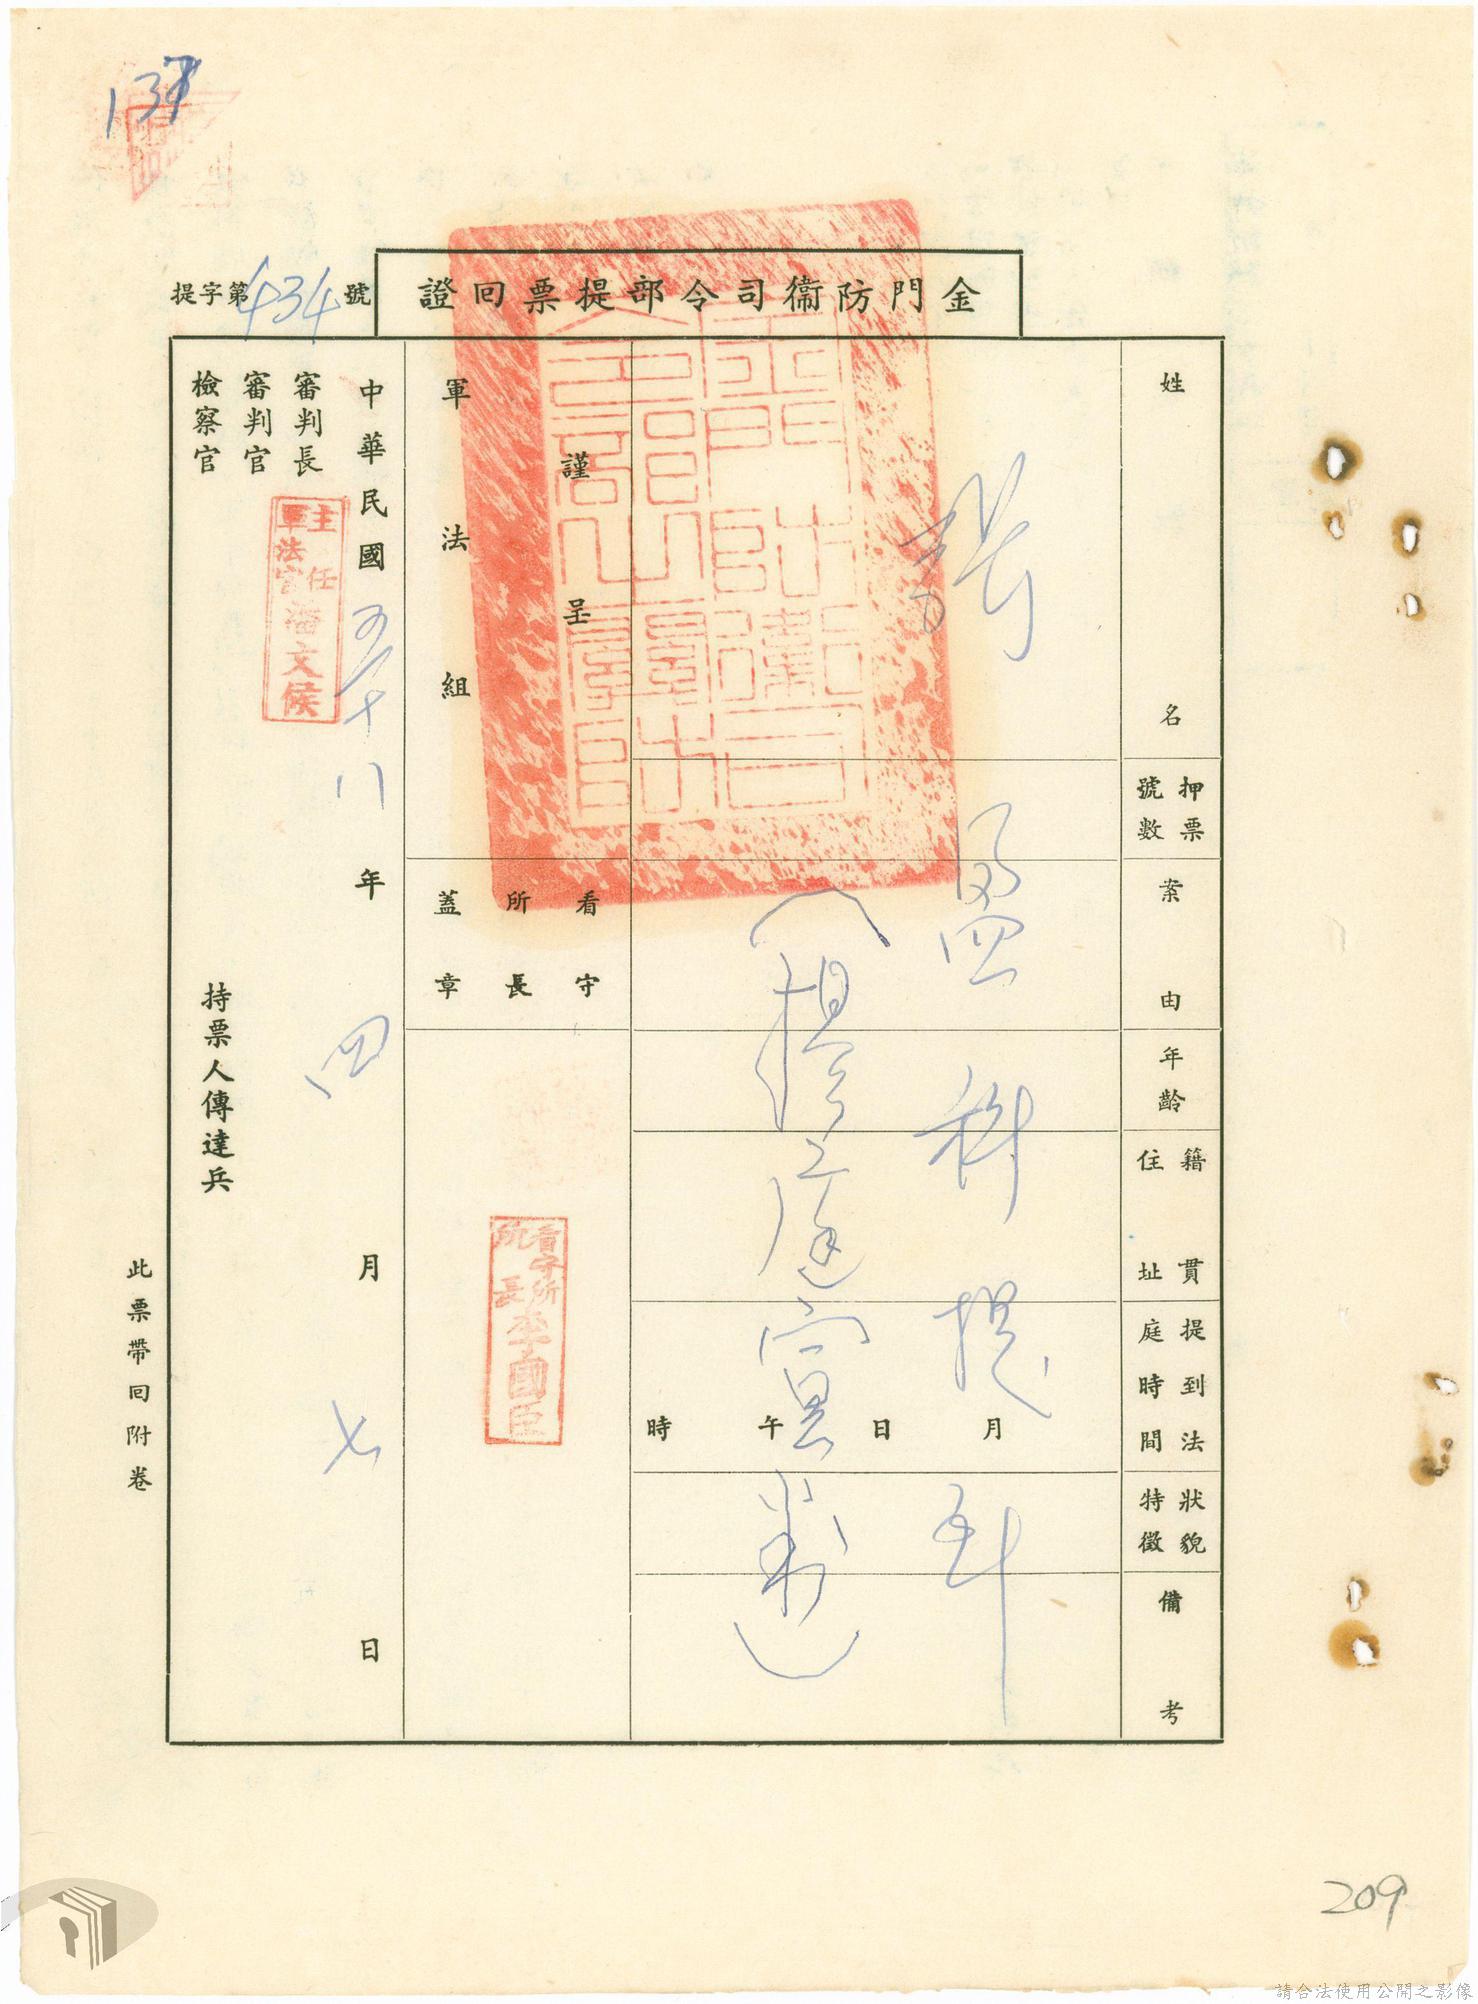 137
金門防衞司令部提票回證
提字第434號
姓名
押票號數
案由
年齡
籍貫住址
提到法庭時間
狀貌特徵
備考
張
盈科提
月日午時
(提庭宣判)
謹呈
軍法組
看守所長蓋章
看守所所長李國臣
中華民國五十八年四月七日
審判長
審判官
檢察官
主任軍法官潘文侯
持票人傳達兵
此票帶回附卷
209
請合法使用公開之影像